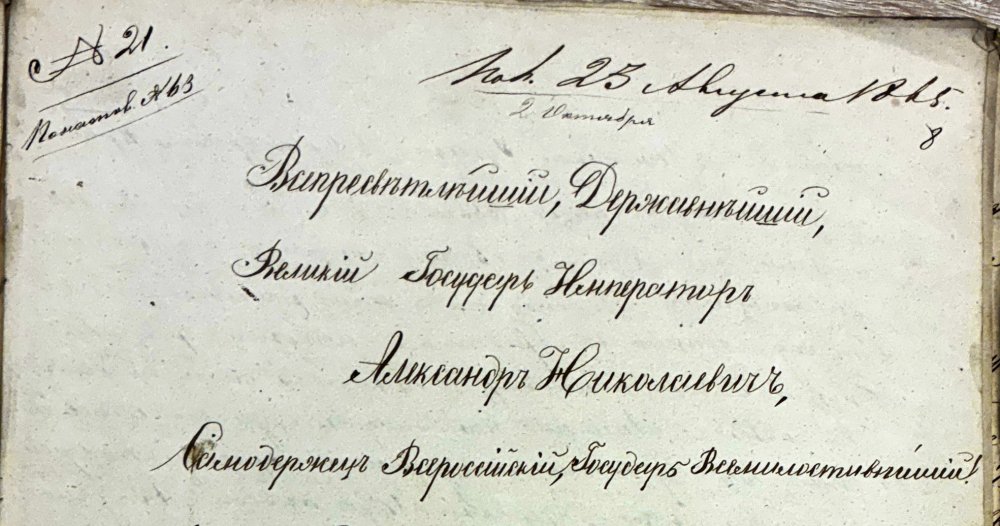 № 21.
№ 63
23 Августа 1865.
2 Октября
8
Всепресвѣтлѣйшій, Державнѣйшій,
Великій Государь Императоръ
Александръ Николаевичъ,
Самодержецъ Всероссійскій, Государь Всемилостивѣйшій!